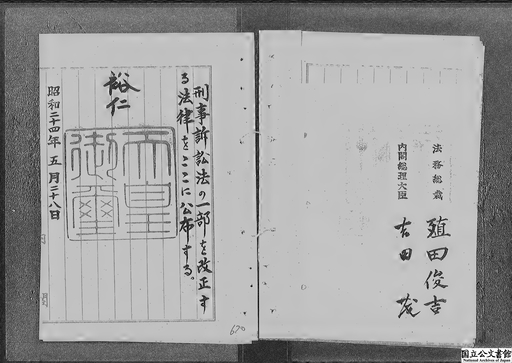 刑事訴訟法の一部を改正す
る法律をここに公布する。
裕仁
天皇
御璽
昭和二十四年五月二十八日
法務総裁 殖田俊吉
内閣総理大臣 吉田茂
670
国立公文書館
National Archives of Japan